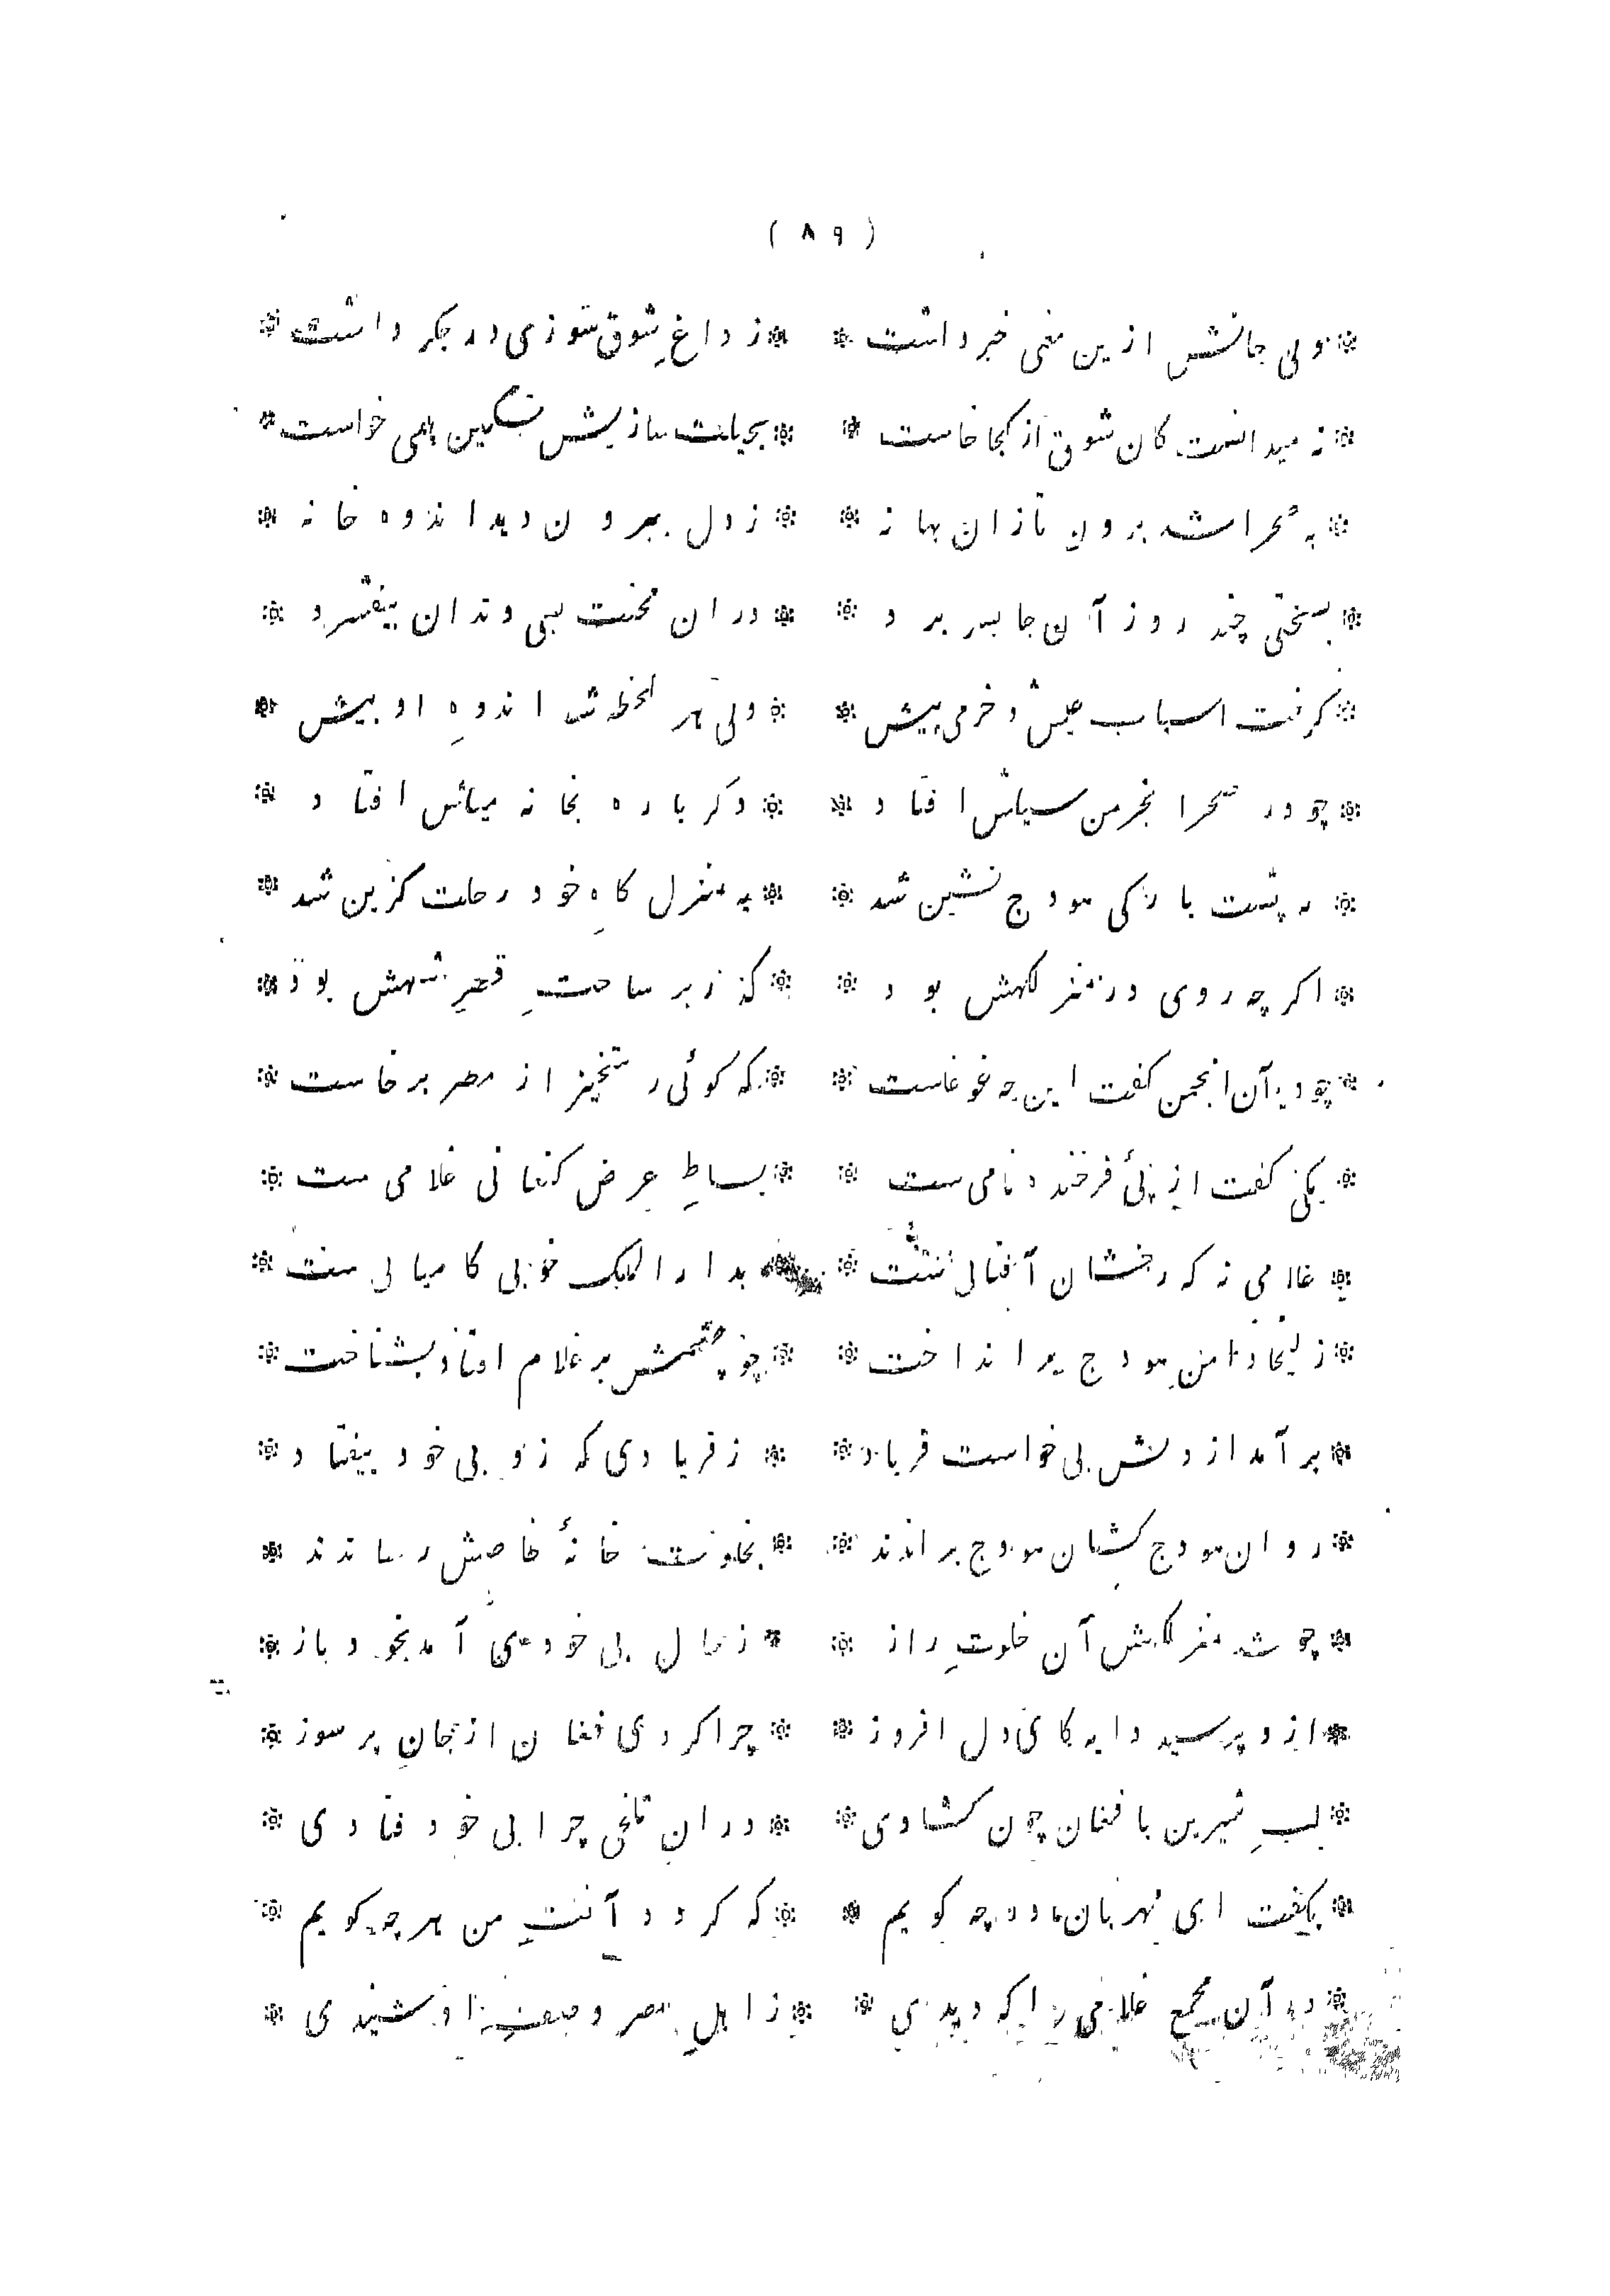 ( ۸۹ )
* ولی جانش ازین معنی خبر داشت * ز داغِ شوق سوزی در جکر داشت *
* نه میدانست کان شوق از کجا خاست * بحیلت سازیش تسکین همی خواست *
* به صحرا شد برون تا زان بهانه * ز دل بیرون دید اندوه خانه *
* بسختی چند روز آن جا بسر برد * دران محنت بسی دندان بیفشرد *
* کرفت اسباب عیش و خرمی پیش * ولی هر لحظه شد اندوهِ او بیش *
* چو در صحرا بخرمن سیلش افتاد * دکر باره بخانه میلش افتاد *
* به پشت بارکی هودج نشین شد * به منزل کاهِ خود رحلت کزین شد *
* اکر چه روی در منزلکهش بود * کذر بر ساحتِ قصرِ شهش بود *
* چو دید آن انجمن کفت این چه غوغاست * که کوئی رستخیز از مصر برخاست *
* یکی کفت از پئ فرخنده نامی ست * بساطِ عرض کنعانی غلامی ست *
* غلامی نه که رخشان آفتابی ست * بدار الملک خوبی کامیابی ست *
* زلیخا دامنِ هودج بر انداخت * چو چشمش بر غلام افتاد بشناخت *
* بر آمد از دلش بی خواست فریاد * ز فریادی که زو بی خود بیفتاد *
* روان هودج کشان هودج براندند * بخلوت خانهٔ خاصش رساندند *
* چو شد منزلکهش آن خلوتِ راز * ز حال بی خودی آمد بخود باز *
* ازو پرسید دایه کای دل افروز * چرا کردی فغان از جانِ پر سوز *
* لبِ شیرین با فغان چون کشادی * دران تلخی چرا بی خود فتادی *
* بکفت ای مهربان مادر چه کویم * که کردد آفتِ من هر چه کویم *
* در آن مجمع غلامی را که دیدی * ز اهلِ مصر وصفِ او شنیدی *